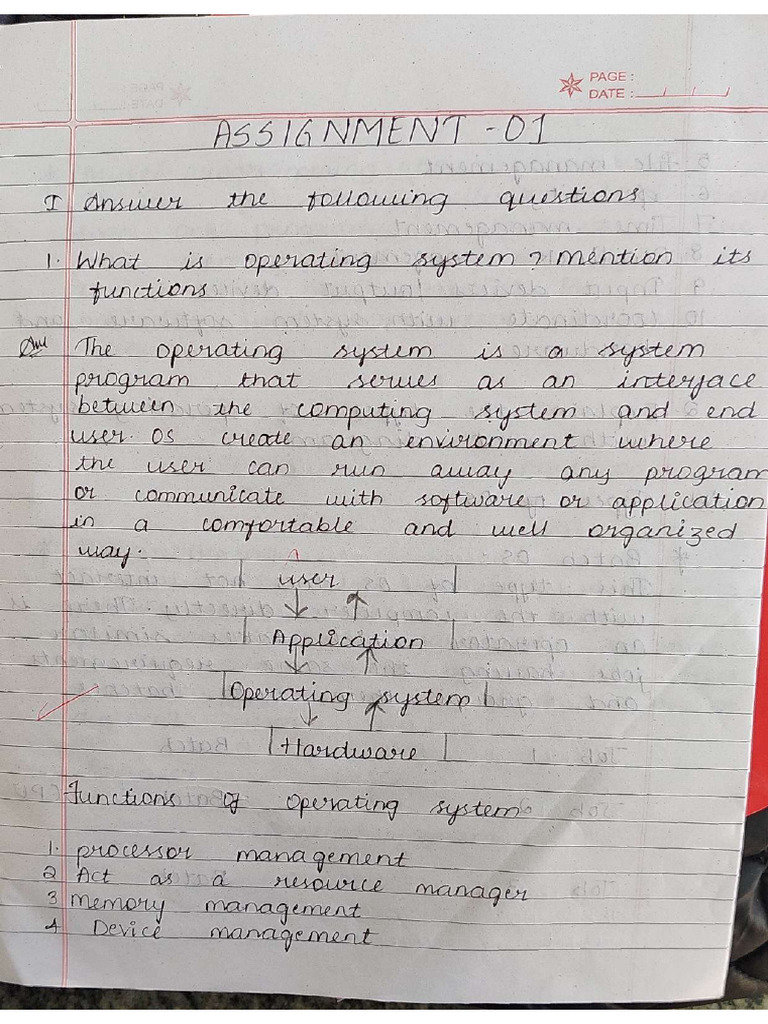 PAGE :
DATE :
ASSIGNMENT - 01
I Answer the following questions
1. What is operating system ? Mention its
functions
Ans The operating system is a system
program that serves as an interface
between the computing system and end
user. OS create an environment where
the user can run away any program
or communicate with software or application
in a comfortable and well organized
way.
user
Application
Operating system
Hardware
Functions of operating system
1. processor management
2 Act as a resource manager
3 memory management
4 Device management